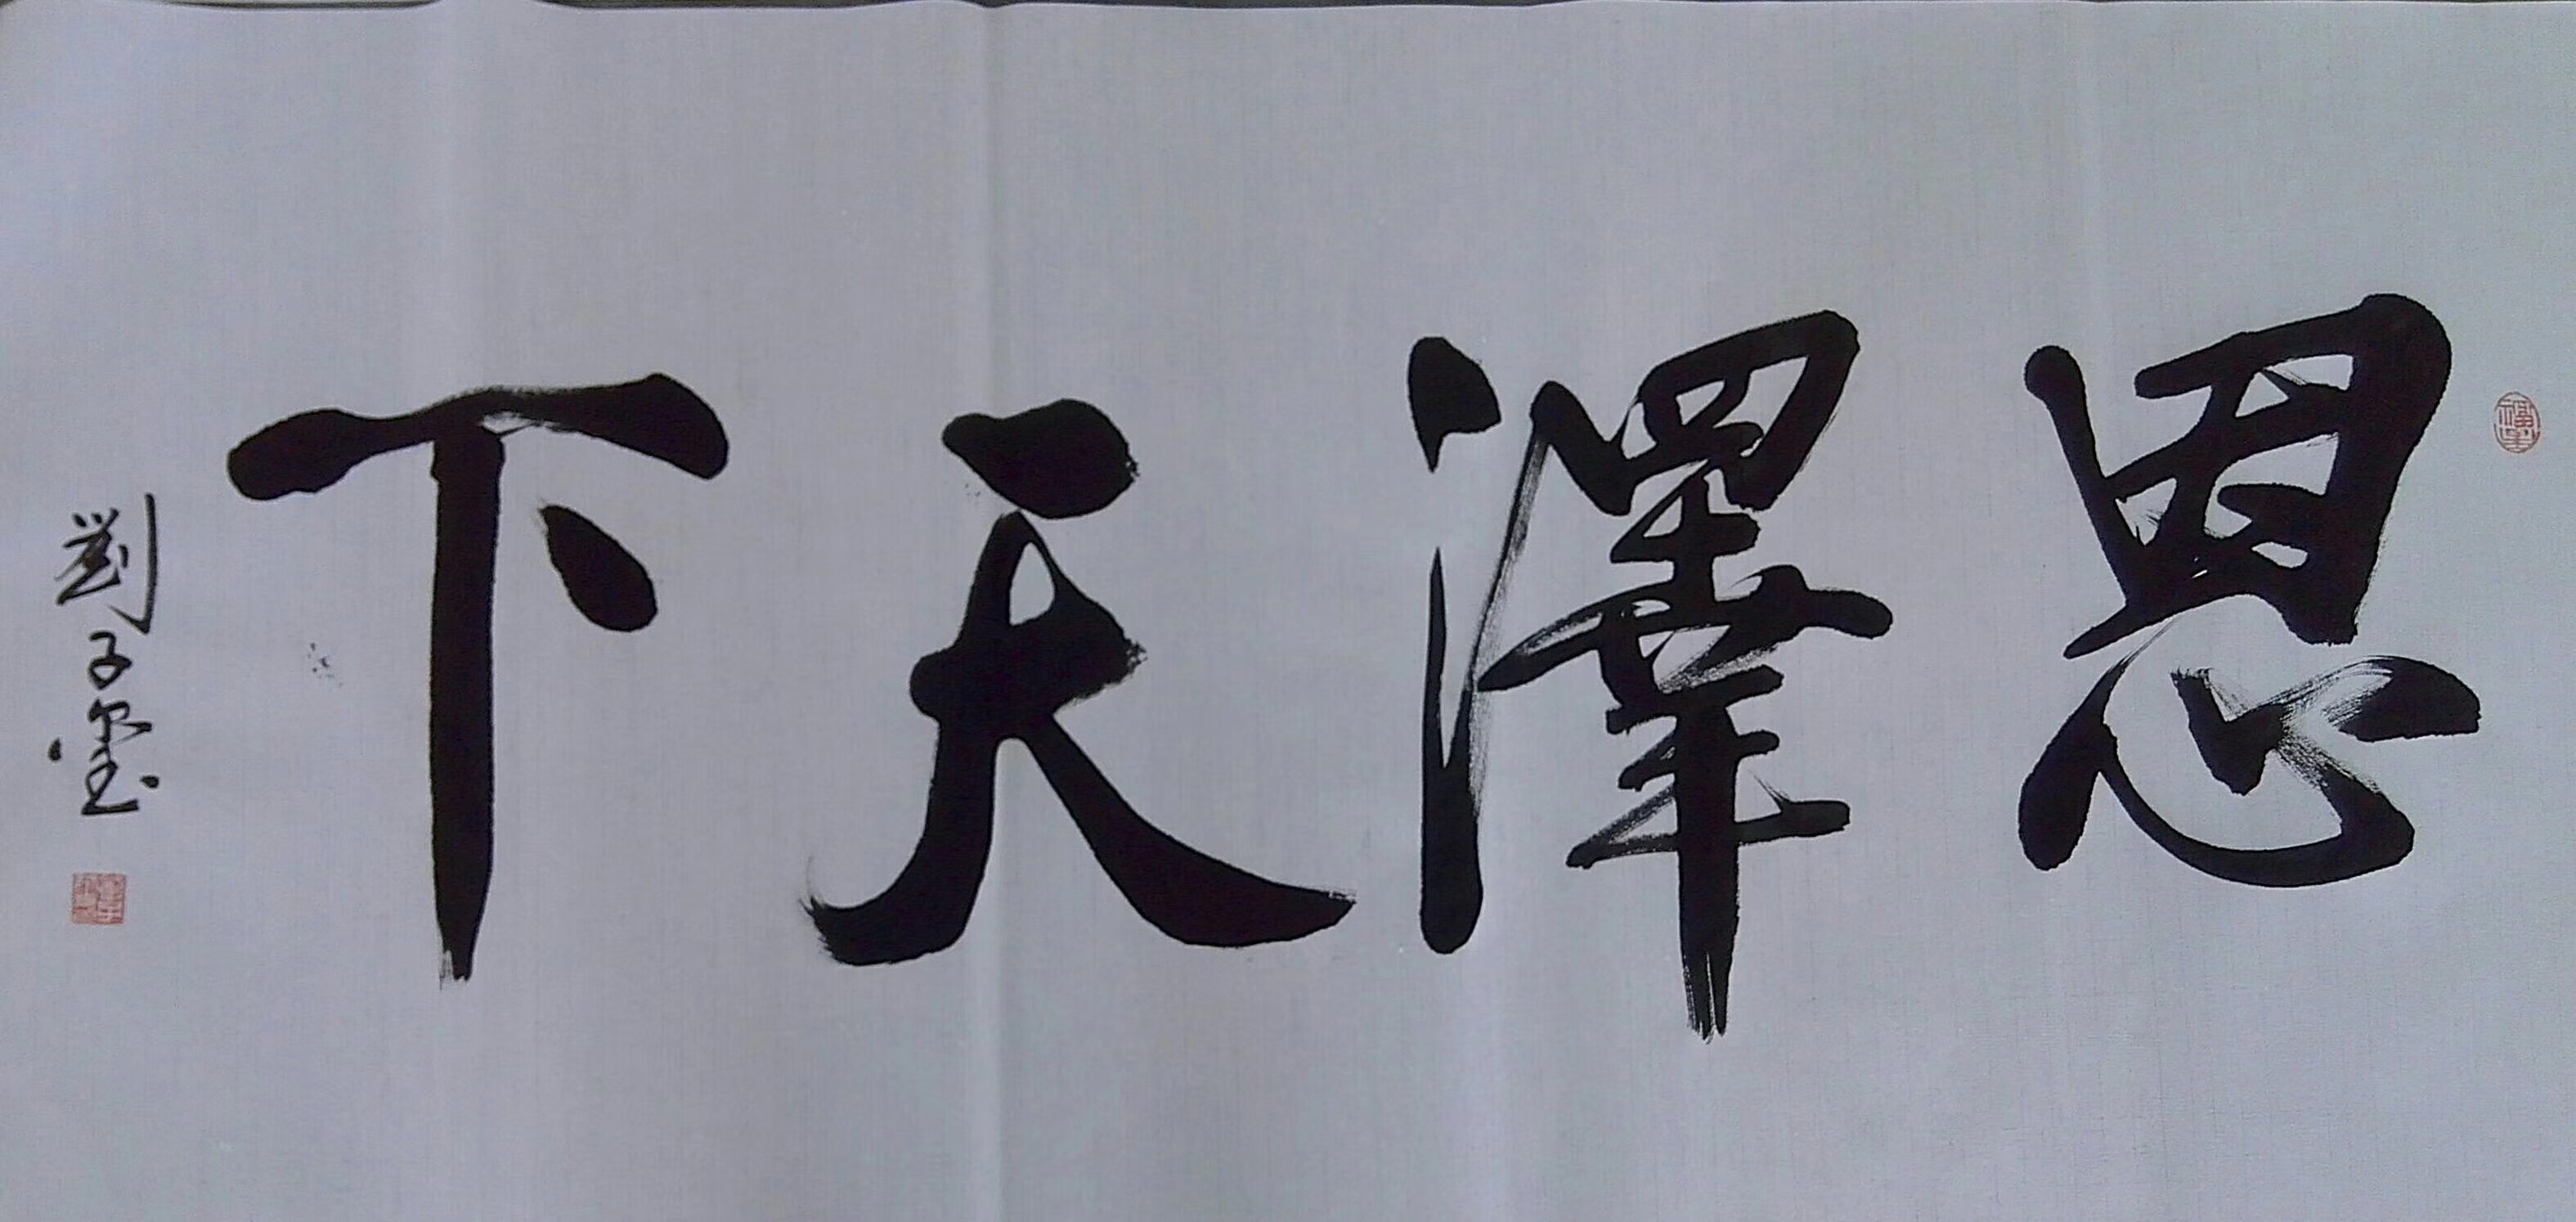 恩澤天下
劉子玺